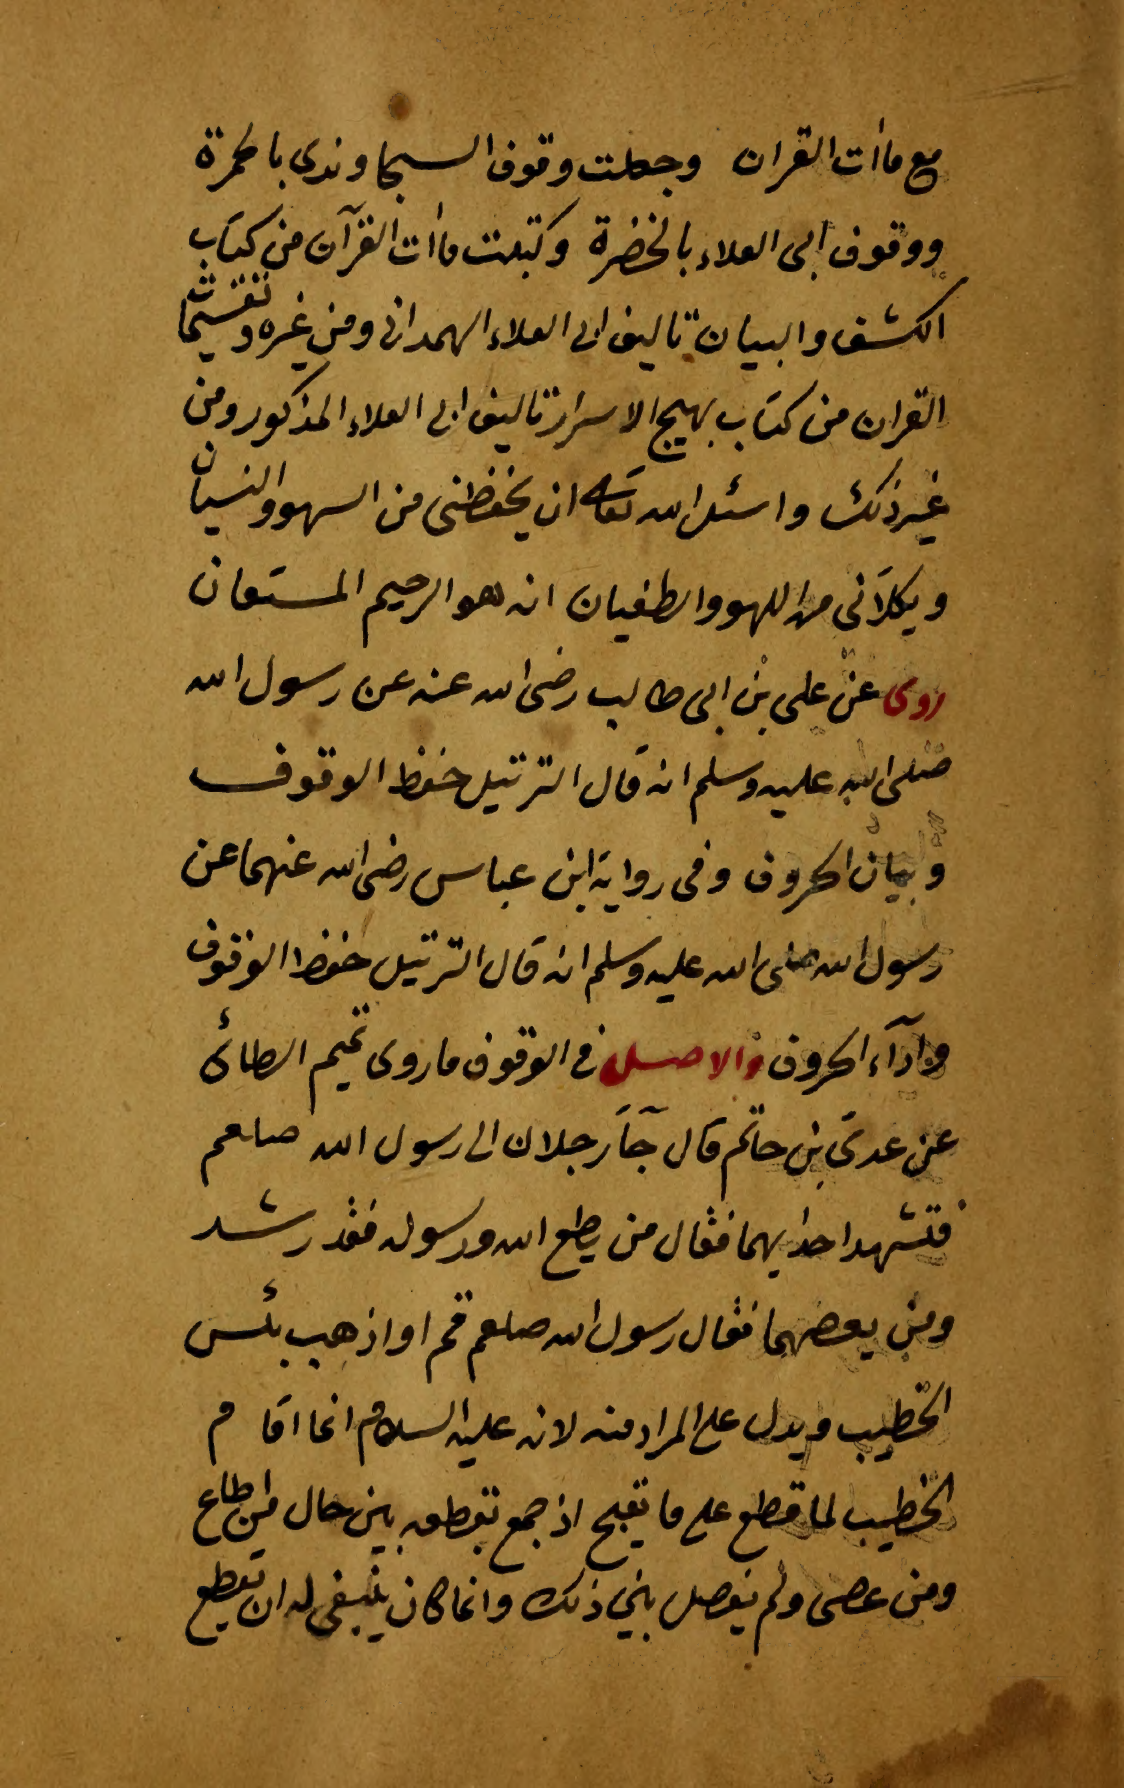 مع ماأت القران وجعلت وقوف السجاوندى بالحمرة
ووقوف ابى العلاء بالخضرة وكتبت ماأت القرآن من كتاب
الكشف والبيان تاليف ابى العلاء الهمدانى ومن غيره وتقسيمات
القران من كتاب بهيج الاسرار تاليف ابى العلاء المذكور ومن
غير ذلك واسئل الله تعالى ان يحفظنى من السهو والنسيان
ويكلآنى من اللهو والطغيان انه هو الرحيم المستعان
روى عن على بن ابى طالب رضى الله عنه عن رسول الله
صلى الله عليه وسلم انه قال الترتيل حفظ الوقوف
وبيان الحروف وفى رواية ابن عباس رضى الله عنهما عن
رسول الله صلى الله عليه وسلم انه قال الترتيل حفظ الوقوف
وادآء الحروف والاصل فى الوقوف ماروى تميم الطائى
عن عدى بن حاتم قال جآء رجلان الى رسول الله صلعم
فتشهد احديهما فقال من يطع الله ورسوله فقد رشد
ومن يعصهما فقال رسول الله صلعم قم او اذهب بئس
الخطيب ويدل على المراد منه لانه عليه السلام انما اقام
الخطيب لما قطع على ما يقبح اذ جمع بقطعه بين حال من اطاع
ومن عصى ولم يفصل بين ذلك وانما كان ينبغى له ان يقطع